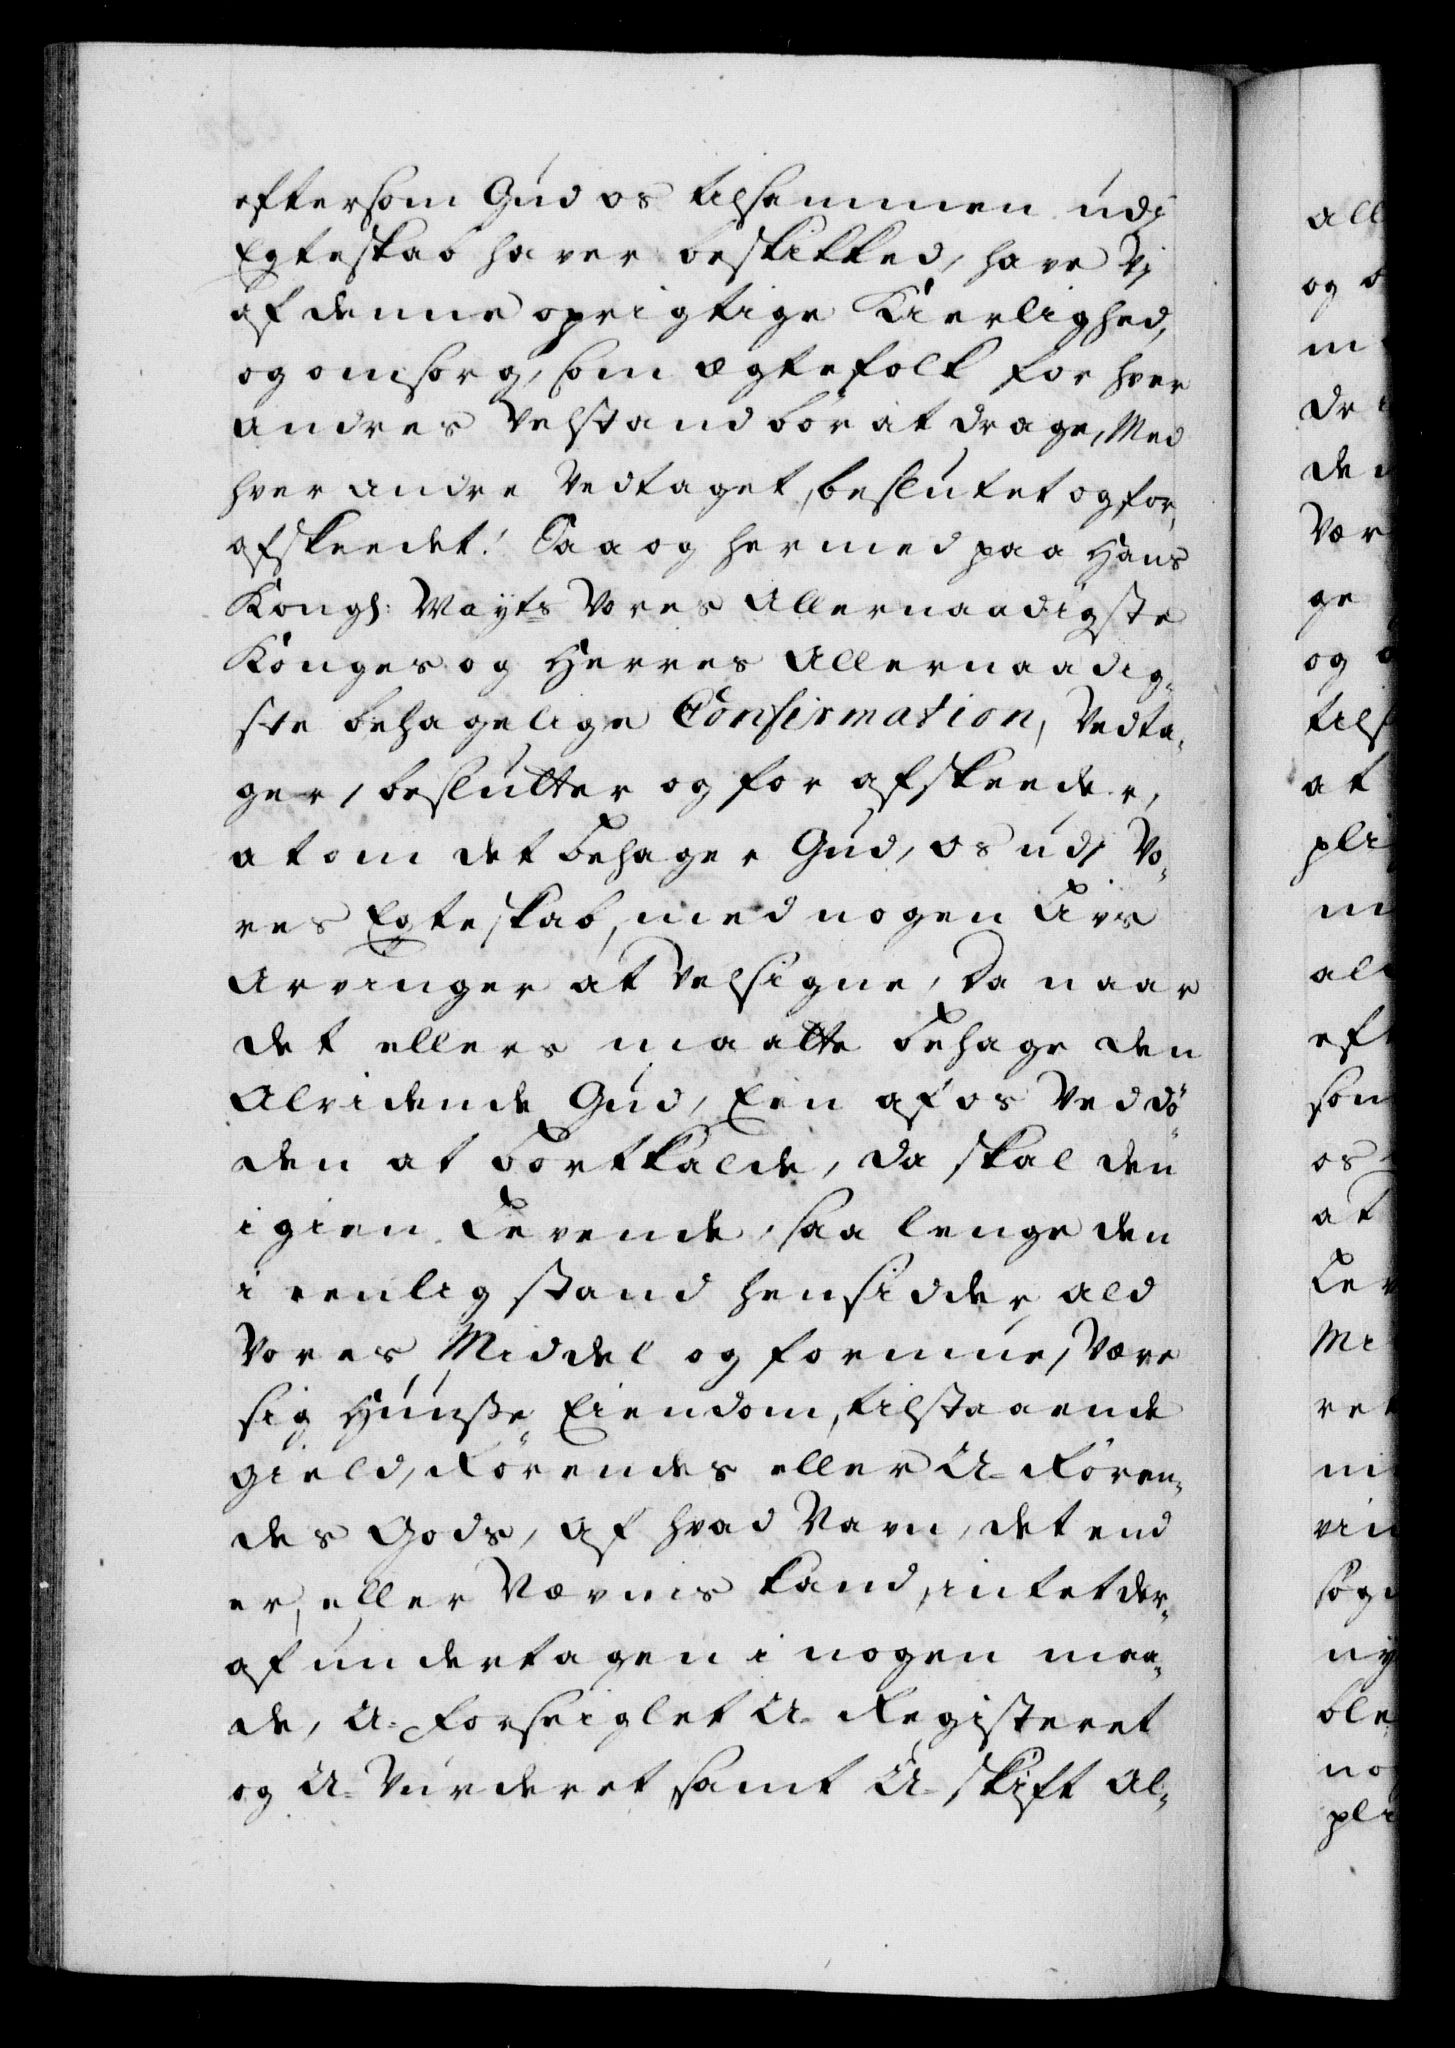 eftersom Gud os tilsammen udj
Egteskab haver beskikked, have Vj
af denne oprigtige Kierlighed,
og omsorg, som ægtefolk for hver
andres Velstand bör at drage, Med
hver andre Vedtaget, beslutet og for„
afskeedet! Saa og hermed paa Hans
Kongl: Mayts Vores Allernaadigste
Konges og Herres Allernaadig„
ste behagelige Confirmation, Vedta„
ger, beslutter og for afskeeder,
at om det behager Gud, os udj Vo„
res Egteskab, med nogen Livs
Arvinger at Velsigne, Da naar
det ellers maatte behage den
Alvidende Gud, Een af os Ved dö„
den at bortkalde, da skal den
igien Levende, saa lenge den
i eenlig stand hensidder, ald
Vores Middel og formue, Være
sig Huuse, Eiendom, tilstaaende
gield, Rörendes eller U-Rören„
des Gods, af hvad Navn, det end
er, eller Nævnis kand, intet der„
af undertagen i nogen maa„
de, U-forseiglet U-Registeret
og U-Vurderet samt U-skift Al„
all
og
m
dr
de
Vær
ge
og
tils
at
pli
m
al
eft
som
os
at
Lev
Mi
ret
ni
vin
söge
ny
ble
no
pli